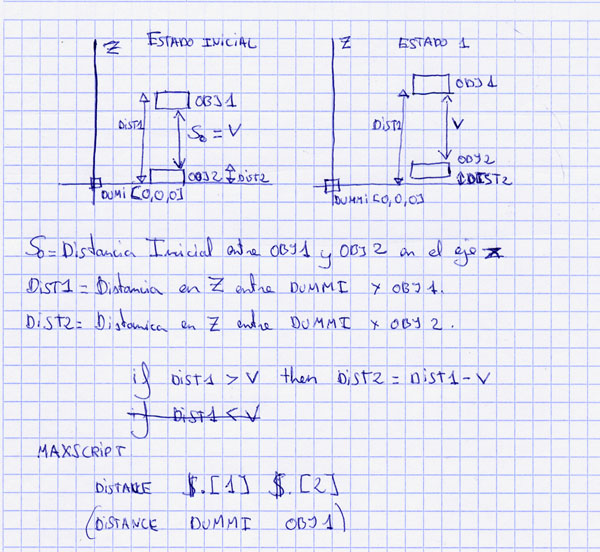 Z ESTADO INICIAL
OBJ1
DIST1
S₀ = V
OBJ2 DIST2
DUMI [0,0,0]
Z ESTADO 1
OBJ1
DIST1
V
OBJ2
DIST2
DUMMI [0,0,0]
S₀ = Distancia Inicial entre OBJ1 y OBJ2 en el eje Z
DIST1 = Distancia en Z entre DUMMI y OBJ1.
DIST2 = Distamica en Z entre DUMMI y OBJ2.
if DIST1 > V then DIST2 = DIST1 - V
if DIST1 < V
MAXSCRIPT
DISTANCE $.[1] $.[2]
(DISTANCE DUMMI OBJ1)